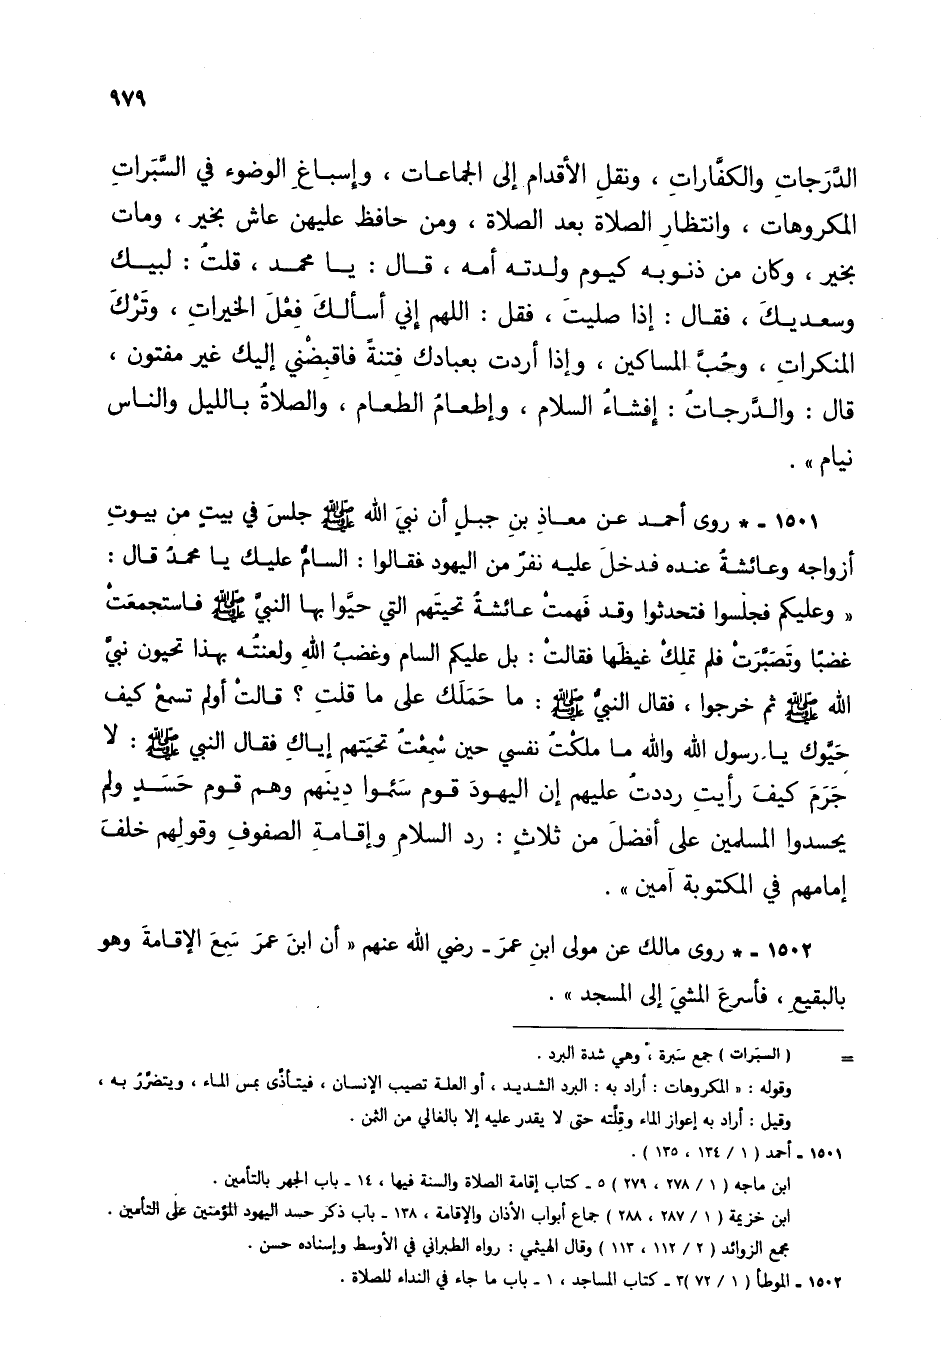 ٩٧٩
الدَّرَجاتِ والكفَّاراتِ ، ونقلِ الأقدام إلى الجماعات ، وإسباغ الوضوء في السَّبَراتِ
المكروهات ، وانتظار الصلاة بعد الصلاة ، ومن حافظ عليهن عاش بخير ، ومات
بخير ، وكان من ذنوبه كيوم ولدته أمه ، قال : يا محمد ، قلتُ : لبيك
وسعديكَ ، فقال : إذا صليتَ ، فقل : اللهم إني أسألكَ فِعْلَ الخيراتِ ، وتَرْكَ
المنكراتِ ، وحُبَّ المساكين ، وإذا أردت بعبادك فِتنةً فاقبِضْني إليك غير مفتون ،
قال : والدَّرجاتُ : إفشاءُ السلام ، وإطعامُ الطعام ، والصلاةُ بالليل والناس
نيام » .
١٥٠١ - * روى أحمد عن معاذِ بنِ جبلٍ أن نبيَ الله ﷺ جلسَ في بيتٍ من بيوتِ
أزواجه وعائشةُ عنده فدخلَ عليه نفرٌ من اليهود فقالوا : السامُّ عليك يا محمدُ قال :
« وعليكم فجلسوا فتحدثوا وقد فَهِمتْ عائشةُ تحيتَهم التي حيَّوا بها النبيَّ ﷺ فاستجمعَتْ
غضبًا وتَصَبَّرَتْ فلم تملِكْ غيظَها فقالتْ : بل عليكم السام وغضبُ اللهِ ولعنتُه بهذا تحيون نبيَّ
الله ﷺ ثم خرجوا ، فقال النبيُّ ﷺ : ما حَمَلَك على ما قلتِ ؟ قالتْ أولم تسمعْ كيف
حَيَّوك يا رسول الله والله ما ملكْتُ نفسي حين سَمِعْتُ تحيَتهم إياك فقال النبي ﷺ : لا
جَرَمَ كيفَ رأيتِ رددتُ عليهم إن اليهودَ قوم سَئِموا دِينَهم وهم قوم حَسَدٍ ولم
يحسدوا المسلمين على أفضلَ من ثلاثٍ : رد السلامِ وإقامةِ الصفوفِ وقولِهم خلفَ
إمامهم في المكتوبة آمين » .
١٥٠٢ - * روى مالك عن مولى ابنِ عمرَ - رضي الله عنهم « أن ابنَ عمرَ سَمِعَ الإقامةَ وهو
بالبقيع ، فأسرعَ المشيَ إلى المسجد » .
= ( السبَرات ) جمع سَبرة ، وهي شدة البرد .
وقوله : « المكروهات : أراد به : البرد الشديد ، أو العلة تصيب الإنسان ، فيتأذَّى بمس الماء ، ويتضرَّرُ به ،
وقيل : أراد به إعواز الماء وقلَّته حتى لا يقدر عليه إلا بالغالي من الثمن .
١٥٠١ - أحمد ( ١ / ١٣٤ ، ١٣٥ ) .
ابن ماجه ( ١ / ٢٧٨ ، ٢٧٩ ) ٥ - كتاب إقامة الصلاة والسنة فيها ، ١٤ - باب الجهر بالتأمين .
ابن خزيمة ( ١ / ٢٨٧ ، ٢٨٨ ) جماع أبواب الأذان والإقامة ، ١٣٨ - باب ذكر حسد اليهود المؤمنين على التأمين .
مجمع الزوائد ( ٢ / ١١٢ ، ١١٣ ) وقال الهيثمي : رواه الطبراني في الأوسط وإسناده حسن .
١٥٠٢ - الموطأ ( ١ / ٧٢ )٣ - كتاب المساجد ، ١ - باب ما جاء في النداء للصلاة .